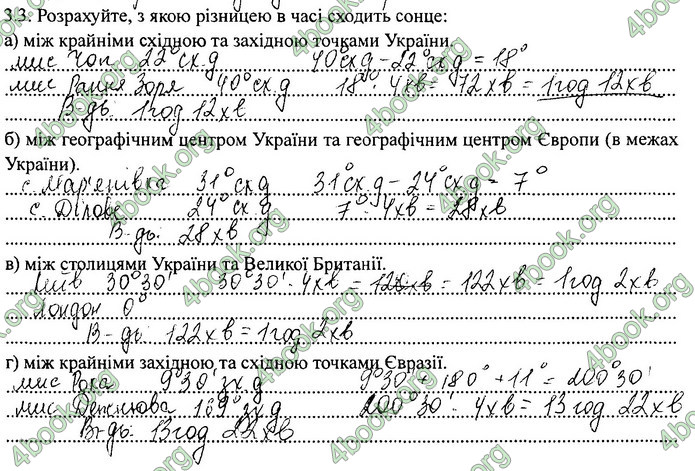 3.3. Розрахуйте, з якою різницею в часі сходить сонце:
а) між крайніми східною та західною точками України.
мис Чоп 22° сх.д 40° сх.д – 22° сх.д = 18°
мис Рання Зоря 40° сх.д 18° · 4хв = 72хв = 1год 12хв
В-дь: 1год 12хв
б) між географічним центром України та географічним центром Європи (в межах
України).
с. Мар'янівка 31° сх.д 31° сх.д – 24° сх.д = 7°
с. Ділове 24° сх.д 7° · 4хв = 28хв
В-дь: 28хв
в) між столицями України та Великої Британії.
Київ 30°30' 30°30' · 4хв = = 122хв = 1год 2хв
Лондон 0°
В-дь: 122хв = 1год 2хв
г) між крайніми західною та східною точками Євразії.
мис Рока 9°30' зх.д 9°30' + 180° + 11° = 200°30'
мис Дежньова 169° зх.д 200°30' · 4хв = 13год 22хв
В-дь: 13год 22хв
4book.org